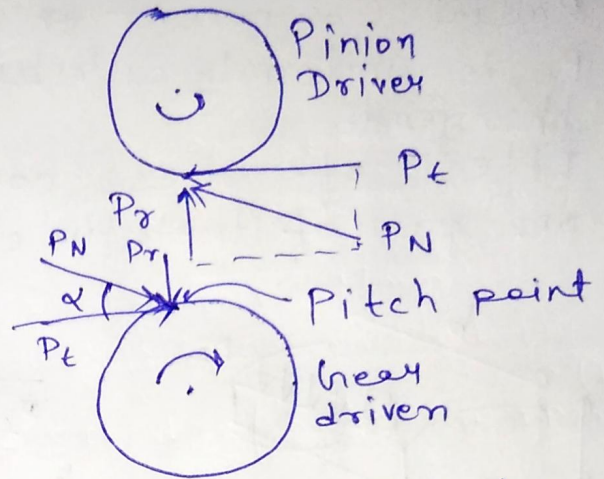 Pinion
Driver
Pt
Pr
PN
PN
Pr
α
Pitch point
Pt
Gear
driven